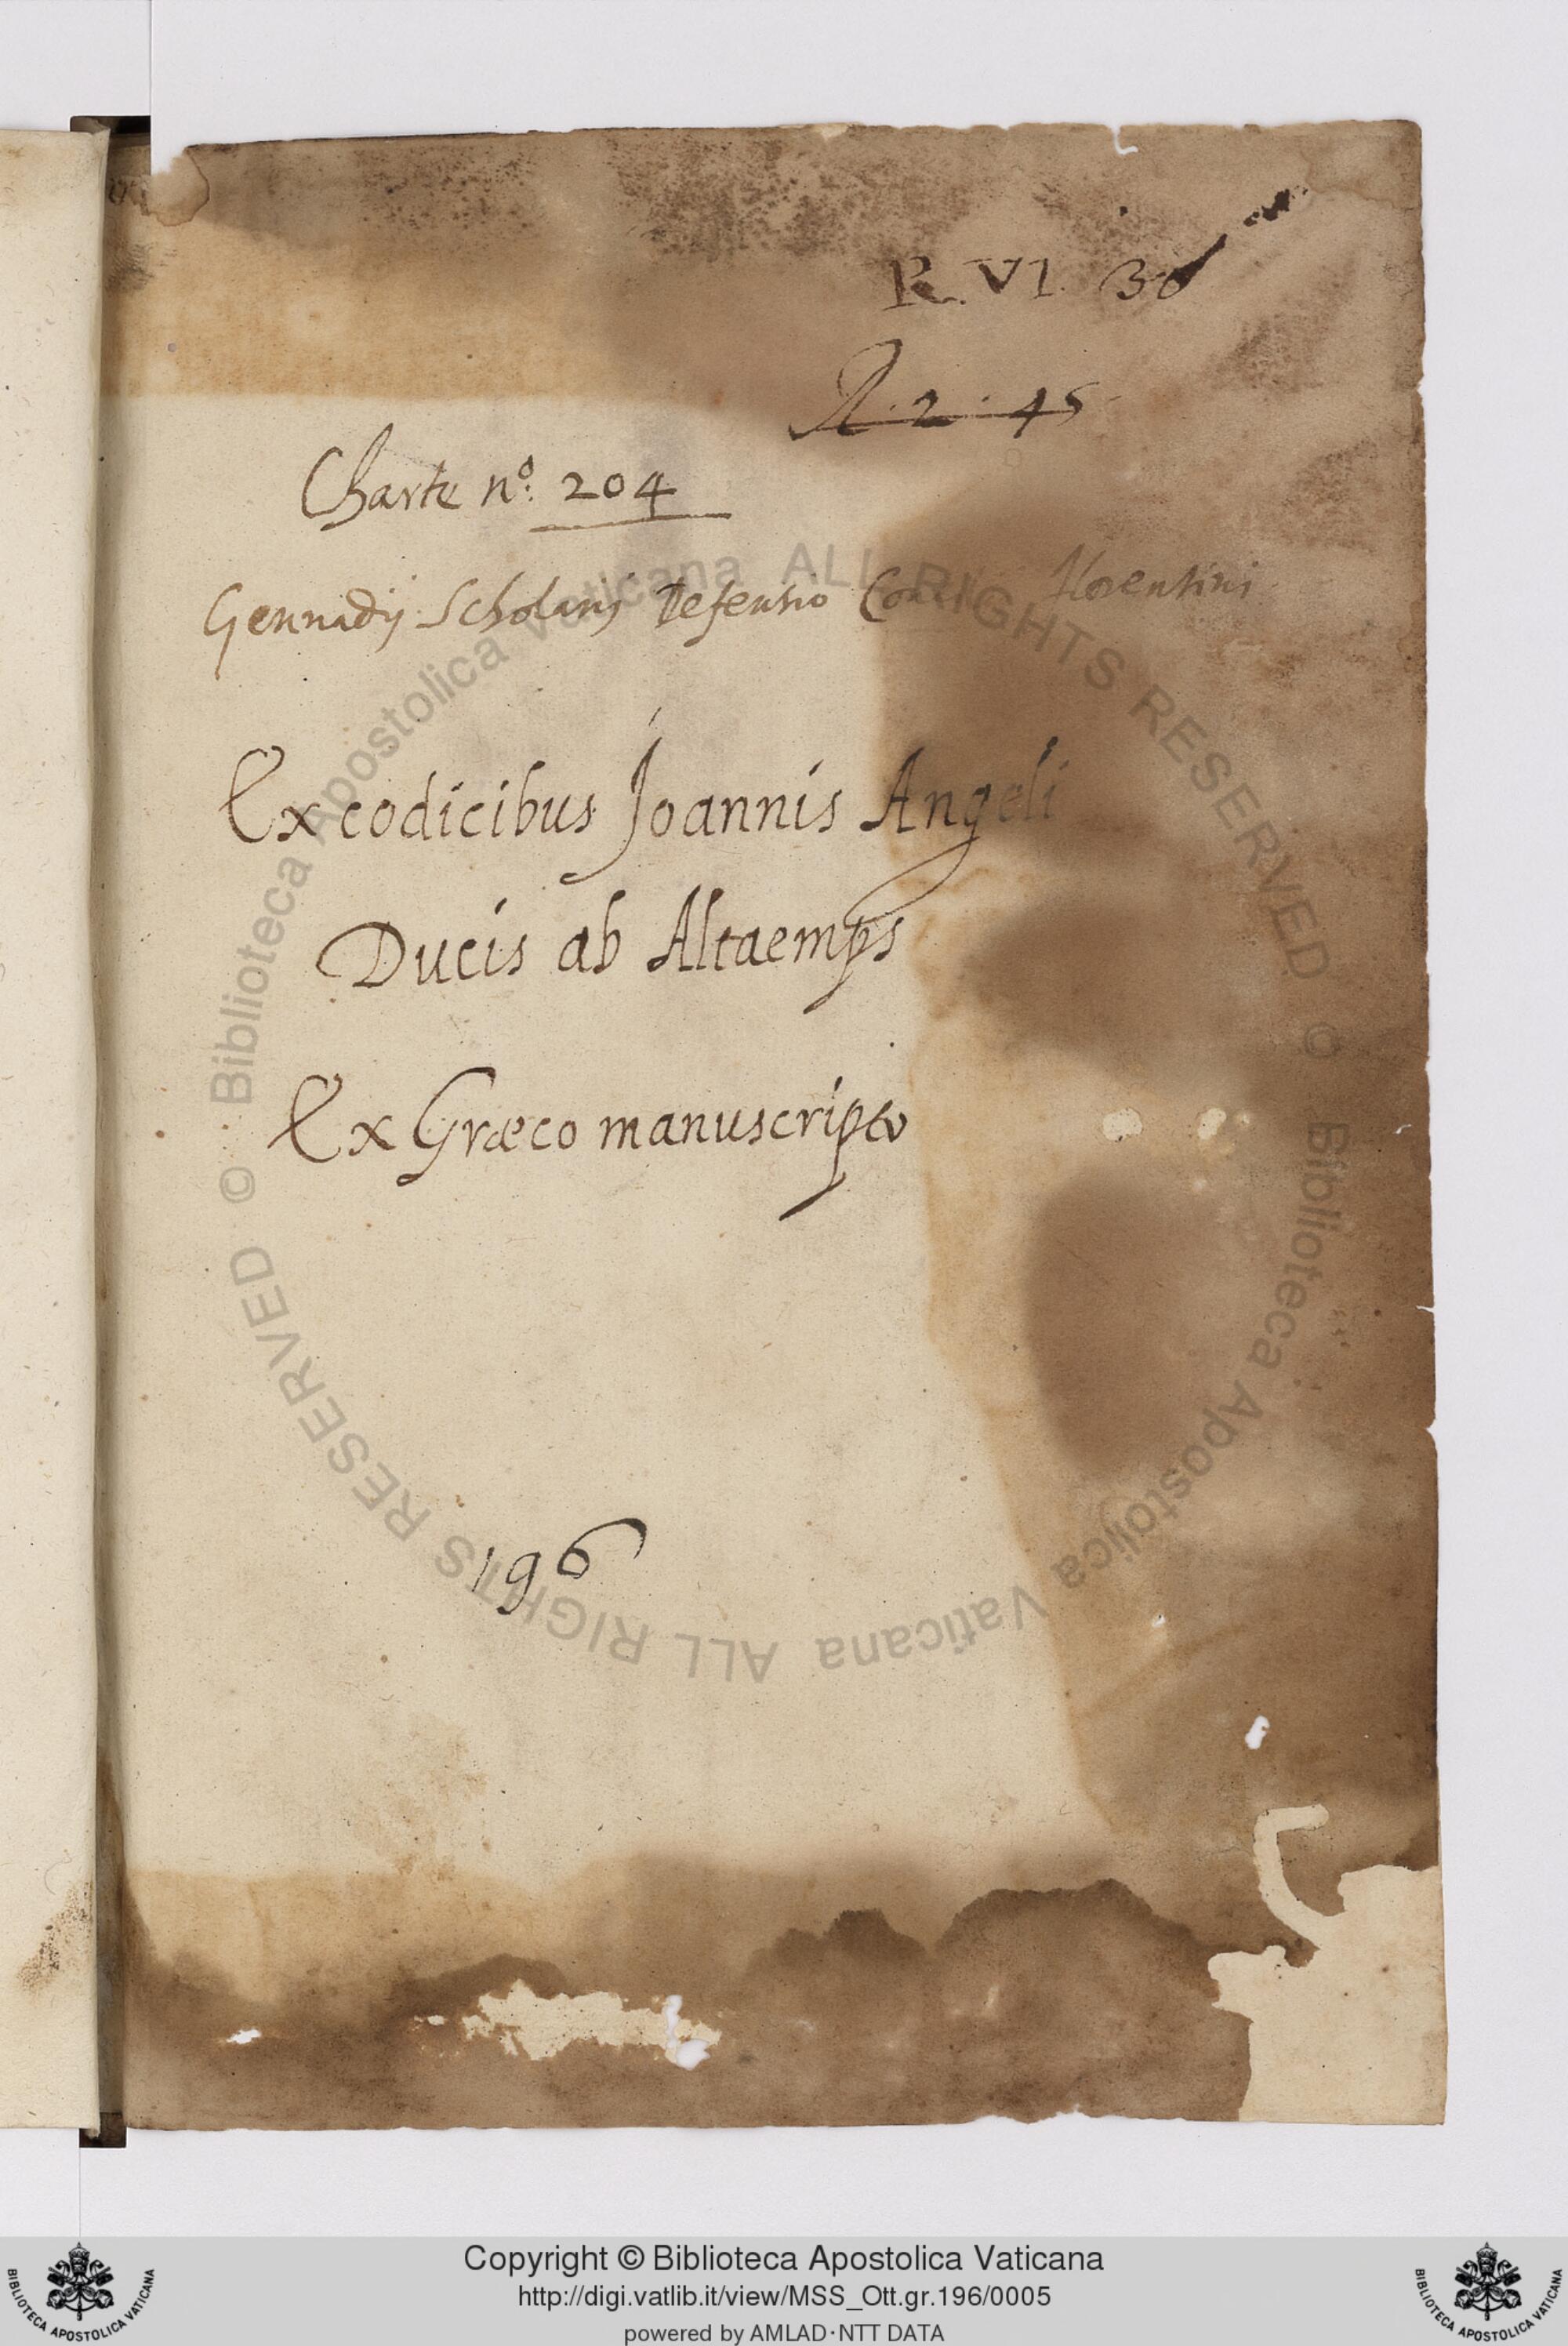 R. VI. 30
R. 2. 45
Charte nº. 204
Gennadij Scholarij Defensio florentini
Ex codicibus Joannis Angeli
Ducis ab Altaemps
Ex Græco manuscripto
196
© Biblioteca Apostolica Vaticana ALL RIGHTS RESERVED © Biblioteca Apostolica Vaticana ALL RIGHTS RESERVED
Copyright © Biblioteca Apostolica Vaticana
http://digi.vatlib.it/view/MSS_Ott.gr.196/0005
powered by AMLAD·NTT DATA
BIBLIOTECA APOSTOLICA VATICANA
BIBLIOTECA APOSTOLICA VATICANA